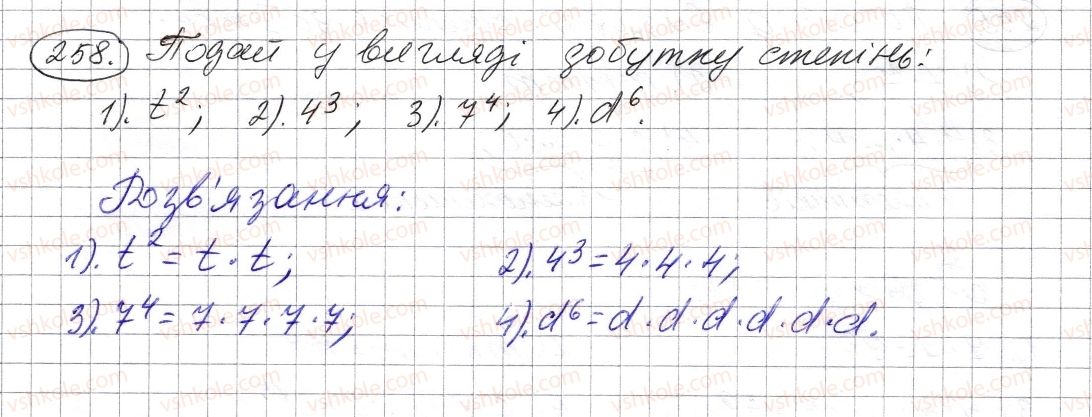 258. Подай у вигляді добутку степінь:
1). t²; 2). 4³; 3). 7⁴; 4). d⁶.
Розв'язання:
1). t² = t · t; 2). 4³ = 4 · 4 · 4;
3). 7⁴ = 7 · 7 · 7 · 7; 4). d⁶ = d · d · d · d · d · d.